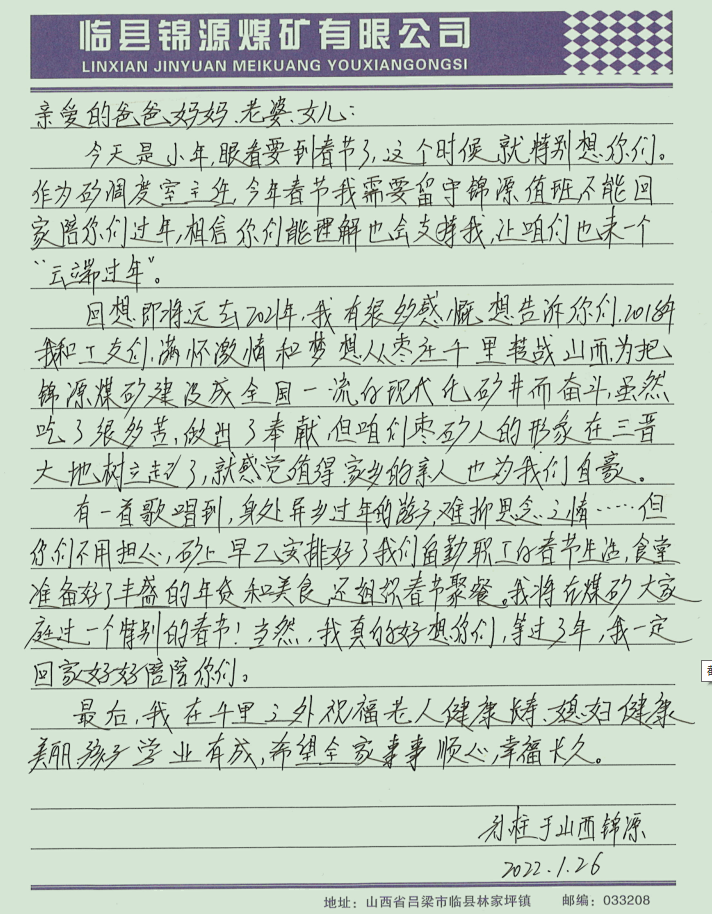 临县锦源煤矿有限公司
LINXIAN JINYUAN MEIKUANG YOUXIANGONGSI
亲爱的爸爸妈妈、老婆、女儿：
今天是小年，眼看要到春节了，这个时候就特别想你们。
作为矿调度室主任，今年春节我需要留守锦源值班，不能回
家陪你们过年，相信你们能理解也会支持我，让咱们也来一个
“云端过年”。
回想即将远去2021年，我有很多感慨想告诉你们，2018年
我和工友们，满怀激情和梦想从枣庄千里转战山西，为把
锦源煤矿建设成全国一流的现代化矿井而奋斗，虽然
吃了很多苦，做出了奉献，但咱们枣矿人的形象在三晋
大地树立起了，就感觉值得，家乡的亲人也为我们自豪。
有一首歌唱到，身处异乡过年的游子，难抑思念之情……但
你们不用担心，矿上早已安排好了我们留勤职工的春节生活，食堂
准备好了丰盛的年货和美食，还组织春节聚餐。我将在煤矿大家
庭过一个特别的春节！当然，我真的好想你们，等过了年，我一定
回家好好陪陪你们。
最后，我在千里之外祝福老人健康长寿、媳妇健康
美丽孩子学业有成，希望全家事事顺心，幸福长久。
于山西锦源
2022.1.26
地址：山西省吕梁市临县林家坪镇 邮编：033208